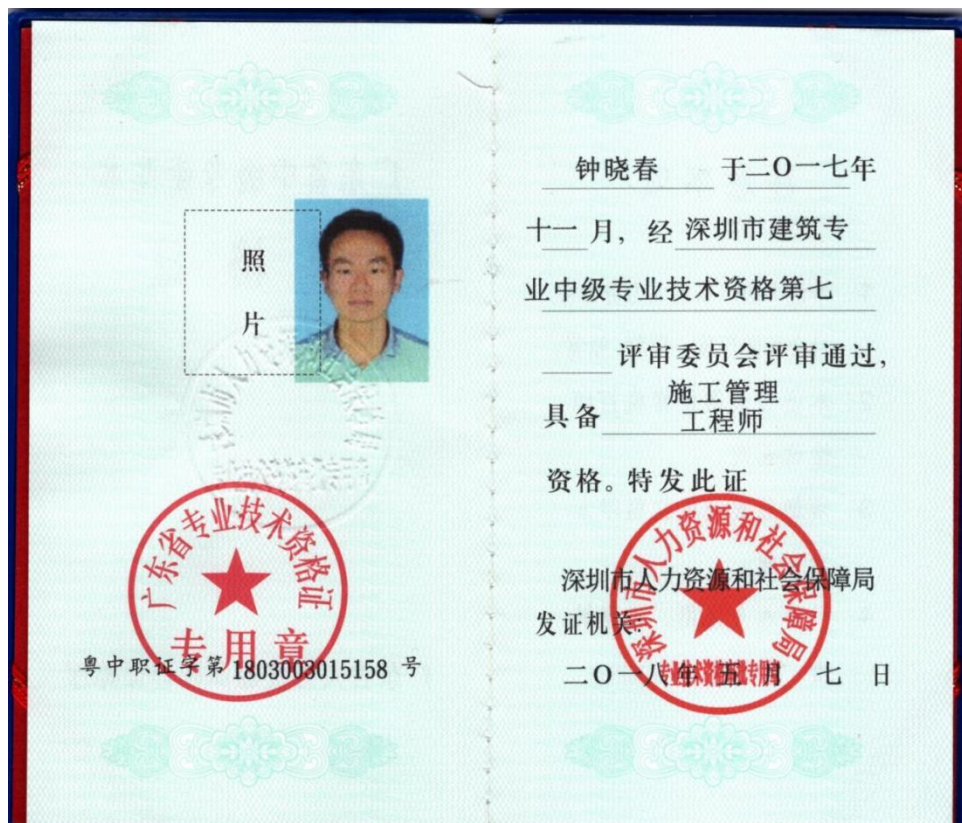 照
片
广东省专业技术资格证
专用章
粤中职证字第1803003015158号
钟晓春 于二〇一七年
十一月,经深圳市建筑专
业中级专业技术资格第七
评审委员会评审通过,
施工管理
具备 工程师
资格。特发此证
深圳市人力资源和社会保障局
深圳市人力资源和社会保障局
发证机关:
二〇一八年五月七日